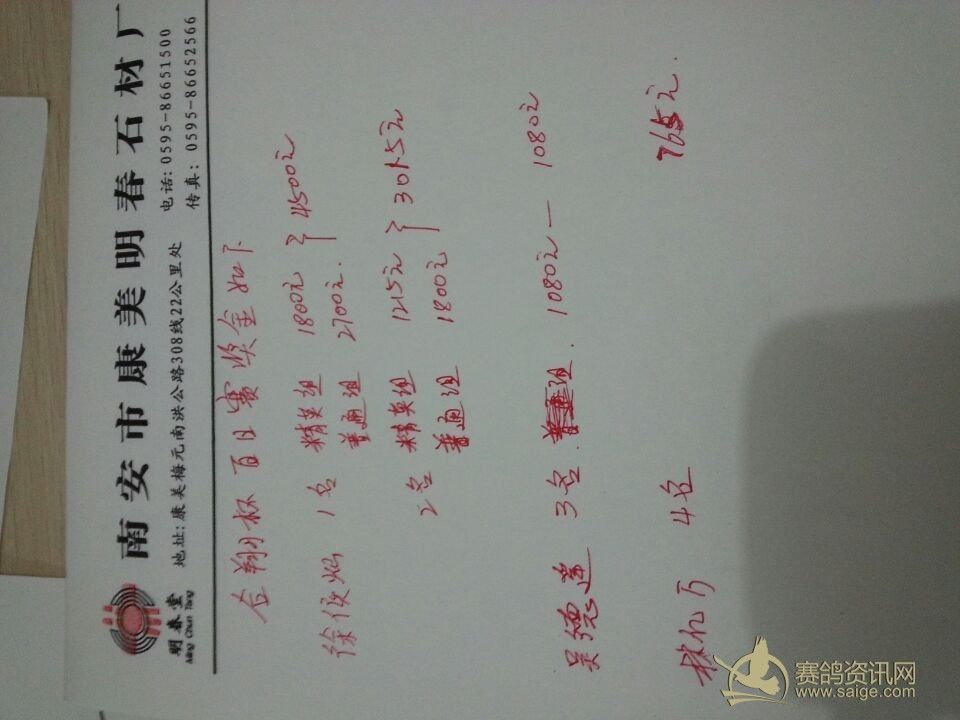 明春堂
Ming Chun Tang
南安市康美明春石材厂
地址:康美梅元南洪公路308线22公里处
电话:0595-86651500
传真:0595-86652566
金翔杯百日赛奖金如下
徐俊灿 1名 精英组 1800元 } 4500元
普通组 2700元.
2名 精英组 1215元 } 3015元
普通组 1800元
吴德莲 3名. 普通组. 1080元— 1080元
林亿万 4名 765元.
赛鸽资讯网
www.saige.com